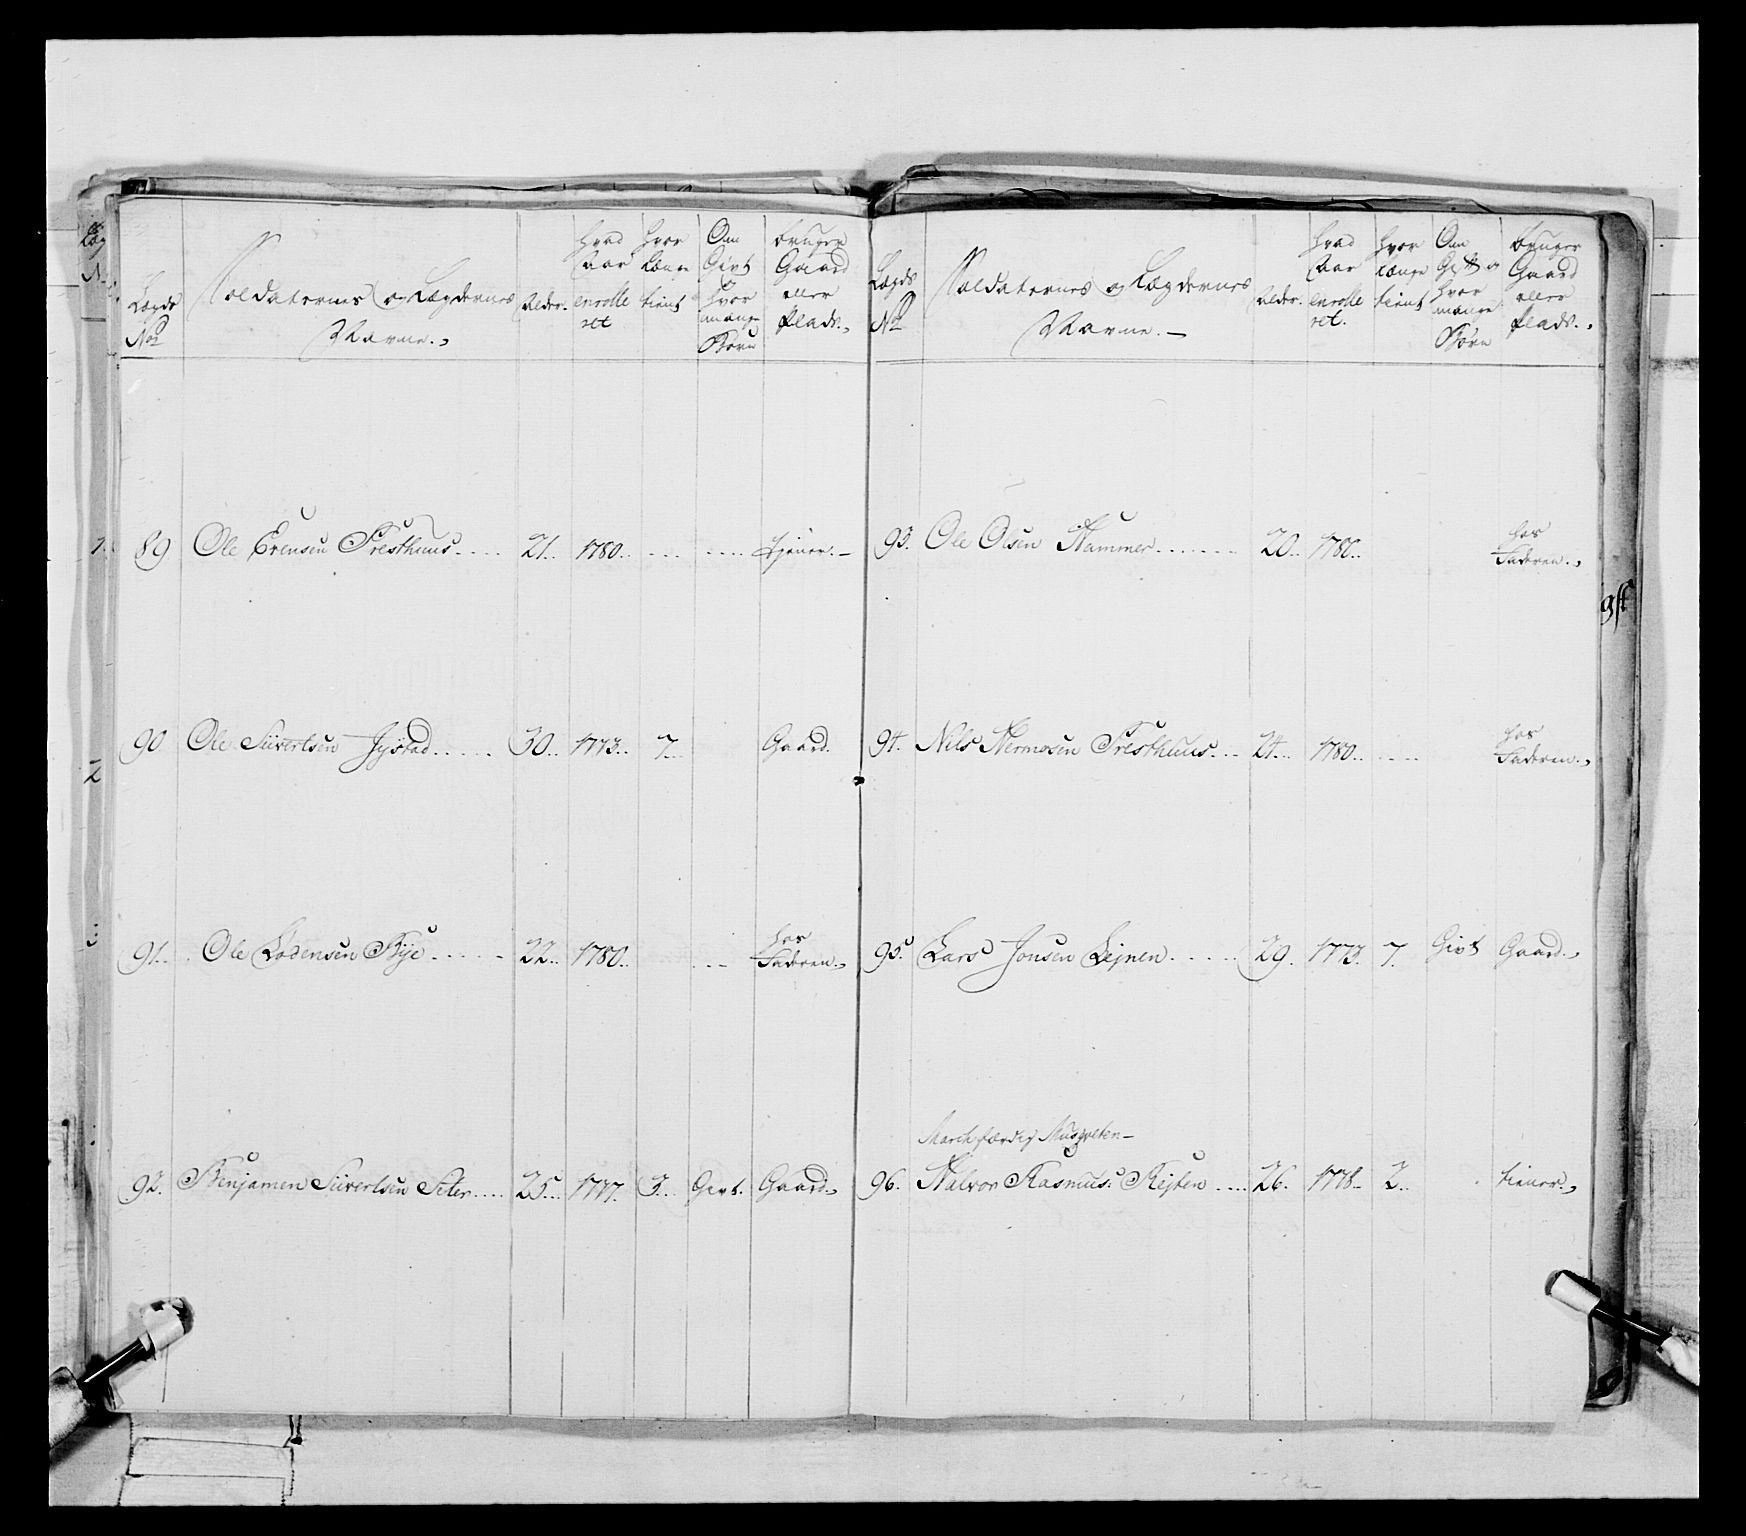 Lægds
No
Soldaternes og Lægdernes
Navne.
Alder.
hvad
Aar
enrolle
ret
hvor
længe
tient
Om
Givt
hvor
mange
Børn
bruger
Gaard
eller
Plads.
89 Ole Evensen Presthuus..... 21.. 1780.. tjener.-
90 Ole Siivertsen Jystad...... 30.. 1773.. 7... Gaard.
91. Ole Lodensen Bye...... 22.. 1780.. hos
Faderen.
92. Benjamen Siivertsen Seter..... 25... 1777. 3... Givt. Gaard.
Lægds
No
Soldaternes og Lægdernes
Navne.-
Alder.
hvad
Aar
enrolle
ret.
hvor
længe
tient
Om
Gift og
hvor
mange
Børn
bruger
Gaard
eller
Plads.
93. Ole Olsen Hammer....... 20.. 1780.. hos
Faderen.
94. Nils Hermosen Presthuus... 24... 1780.. hos
Faderen.
95. Lars Jonsen Lejnen...... 29. 1773. 7. Givt Gaard.
March færdig Musqveten-
96. Halvor Rasmus: Rejten..... 26. 1778.. 2.. tiener.